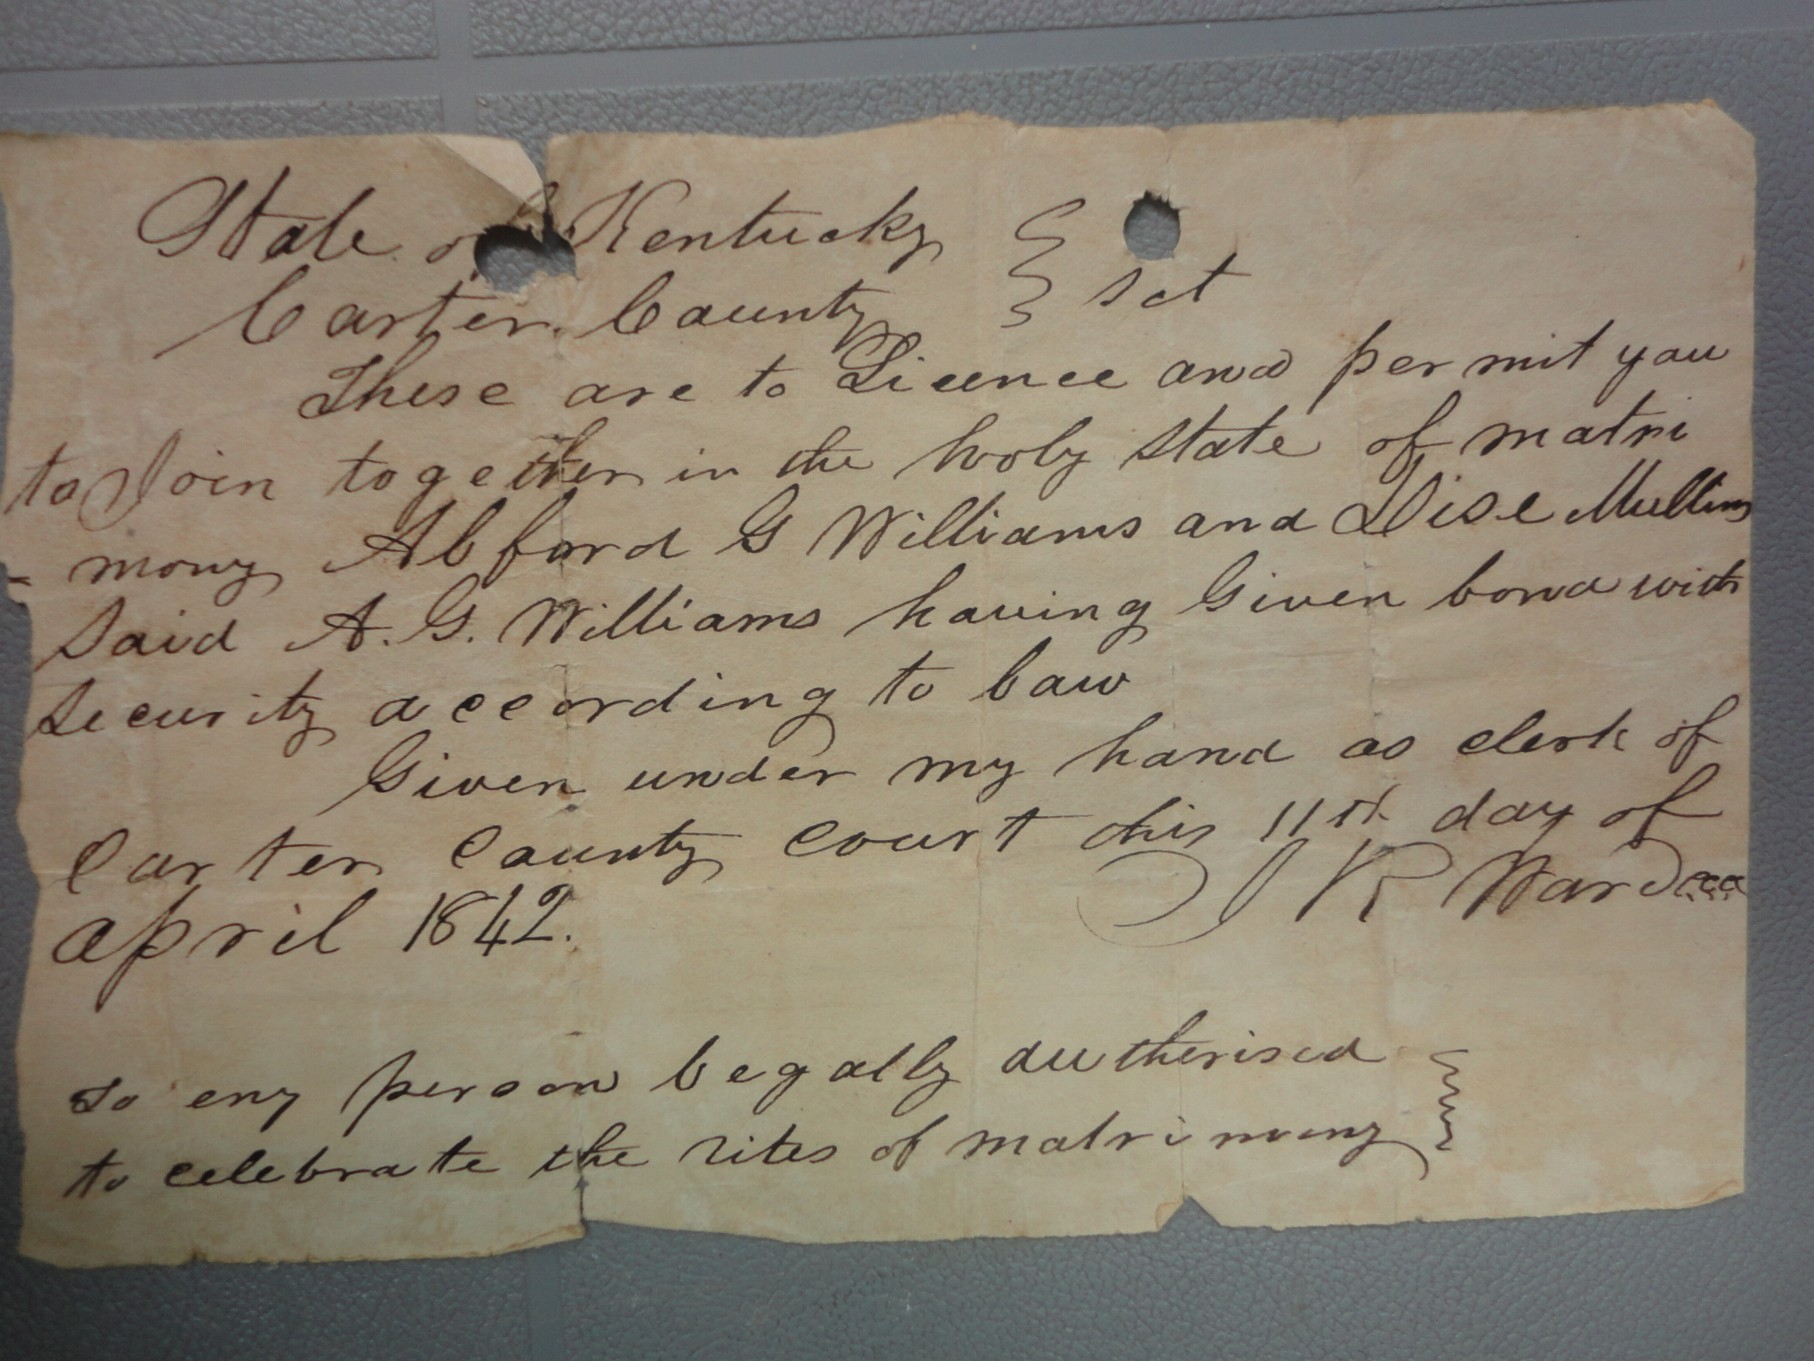 State of Kentucky
Carter County } sct
These are to Licence and permit you
to Join together in the holy state of matri
= mony Alford G Williams and Dise Mullins
Said A. G. Williams having Given bond with
Security according to Law
Given under my hand as clerk of
Carter County court this 11th day of
April 1842. J R Ward ccc
to eny person Legally autherised
to celebrate the rites of matrimony }